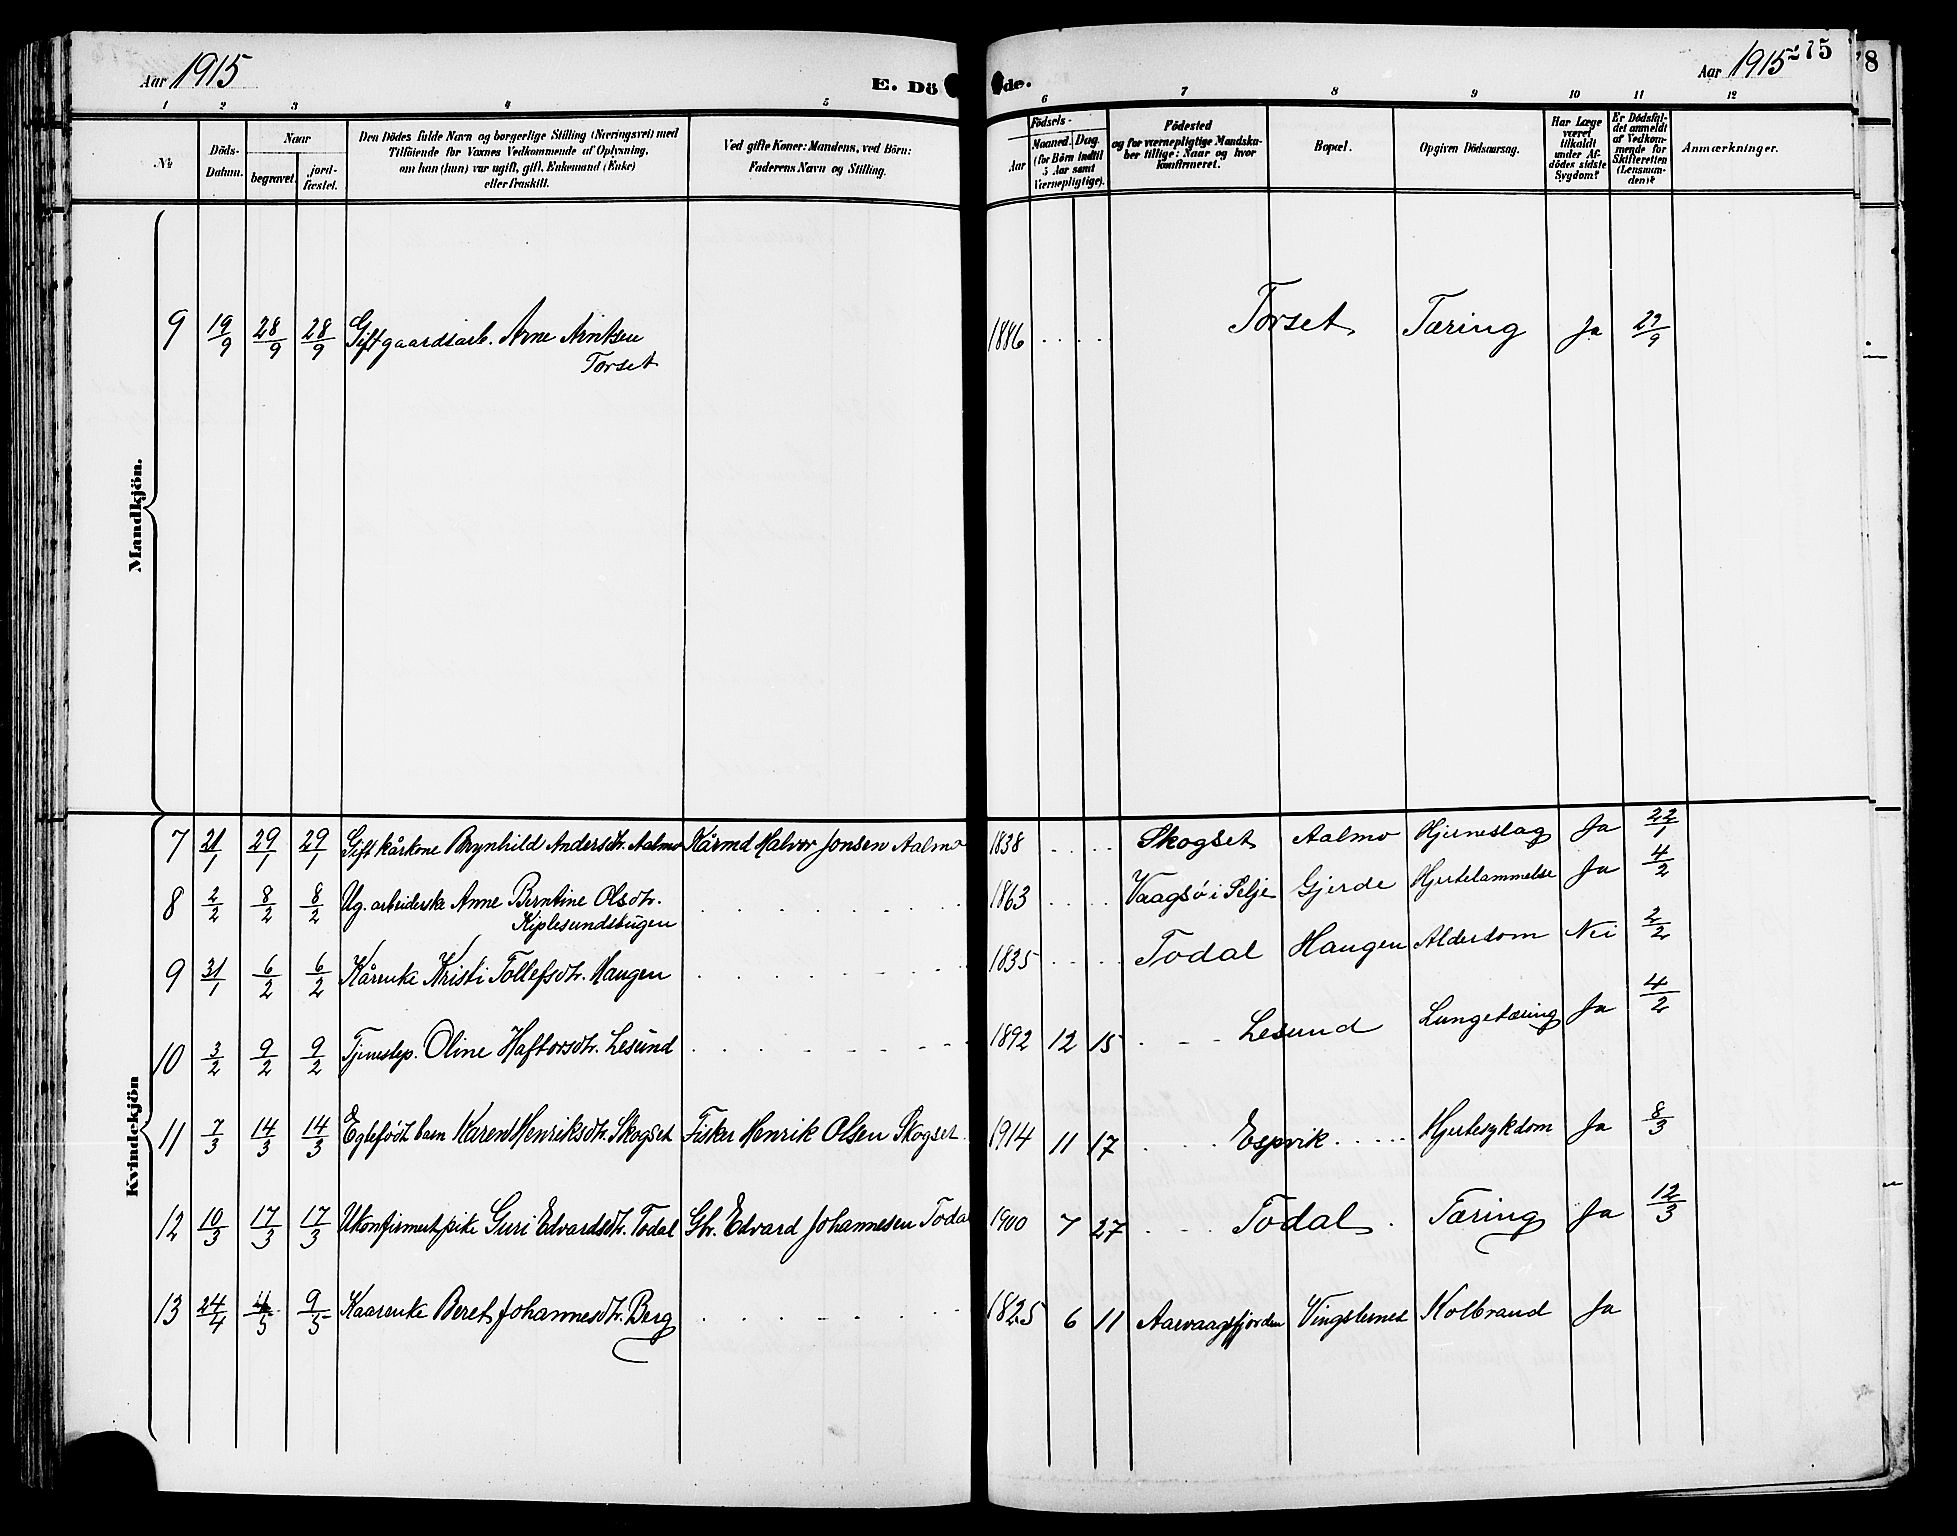 Aar 1915
E. Döde.
Aar 1915
275
8
1 2 3 4 5 6 7 8 9 10 11 12
№
Döds-
Datum.
Naar
begravet.
jord-
fæstet.
Den Dödes fulde Navn og borgerlige Stilling (Næringsvei) med
Tilföiende for Voxnes Vedkommende af Oplysning,
om han (hun) var ugift, gift, Enkemand (Enke)
eller fraskilt.
Ved gifte Koner: Mandens, ved Börn:
Faderens Navn og Stilling.
Födsels-
Aar
Maaned. Dag.
(for Börn indtil
5 Aar samt
Værnepligtige).
Födested
og for værnepligtige Mandska-
ber tillige: Naar og hvor
konfirmeret.
Bopæl.
Opgiven Dödsaarsag.
Har Læge
været
tilkaldt
under Af-
dödes sidste
Sygdom?
Er Dödsfal-
det anmeldt
af Vedkom-
mende for
Skifteretten
(Lensman-
den)?
Anmærkninger.
Mandkjön.
9 19/9 28/9 28/9 Gift gaardsarb. Arne Arntsen 1886 . . . . Torset Tæring Ja 27/9
Torset
Kvindekjön
7 21/1 29/1 29/1 Gift kårkone Brynhild Andersdtr. Aalmo Kårmd Halvor Jonsen Aalmo 1838 . . . . Skogset Aalmo Hjerneslag Ja 22/1
8 2/2 8/2 8/2 Ug. arbeiderske Anne Berntine Olsdtr. 1863 . . . . Vaagsö i Selje Gjerde Hjertelammelse Ja 4/2
Kiplesundsbugen
9 31/1 6/2 6/2 Kårenke Kristi Tollefsdtr. Haugen 1835 . . . . Todal Haugen Alderdom Nei 2/2
10 3/2 9/2 9/2 Tjenestep. Oline Haftorsdtr. Lesund 1892 12 15 Lesund Lungetæring Ja 4/2
11 7/3 14/3 14/3 Egtefödt barn Karen Henriksdtr. Skogset Fisker Henrik Olsen Skogset. 1914 11 17 Espvik Hjertesykdom Ja 8/3
12 10/3 17/3 17/3 Ukonfirmert pike Guri Edvardsdtr. Todal Gbr. Edvard Johannesen Todal 1900 7 27 Todal Tæring Ja 12/3
13 24/4 4/5 9/5 Kaarenke Beret Johannesdtr. Berg 1825 6 11 Aarvaagsfjorden Vingsternes Kolbrand Ja